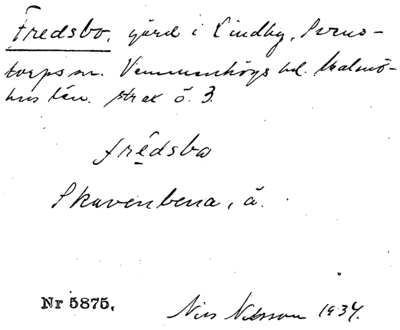 Fredsbo, gård i Lindby, Svens-
torps sn. Vemmenhögs hd. Malmö-
hus län. strax ö. 3.
frédsbo
Skavenbena, å.
Nr 5875.
Nils Nilsson 1934.